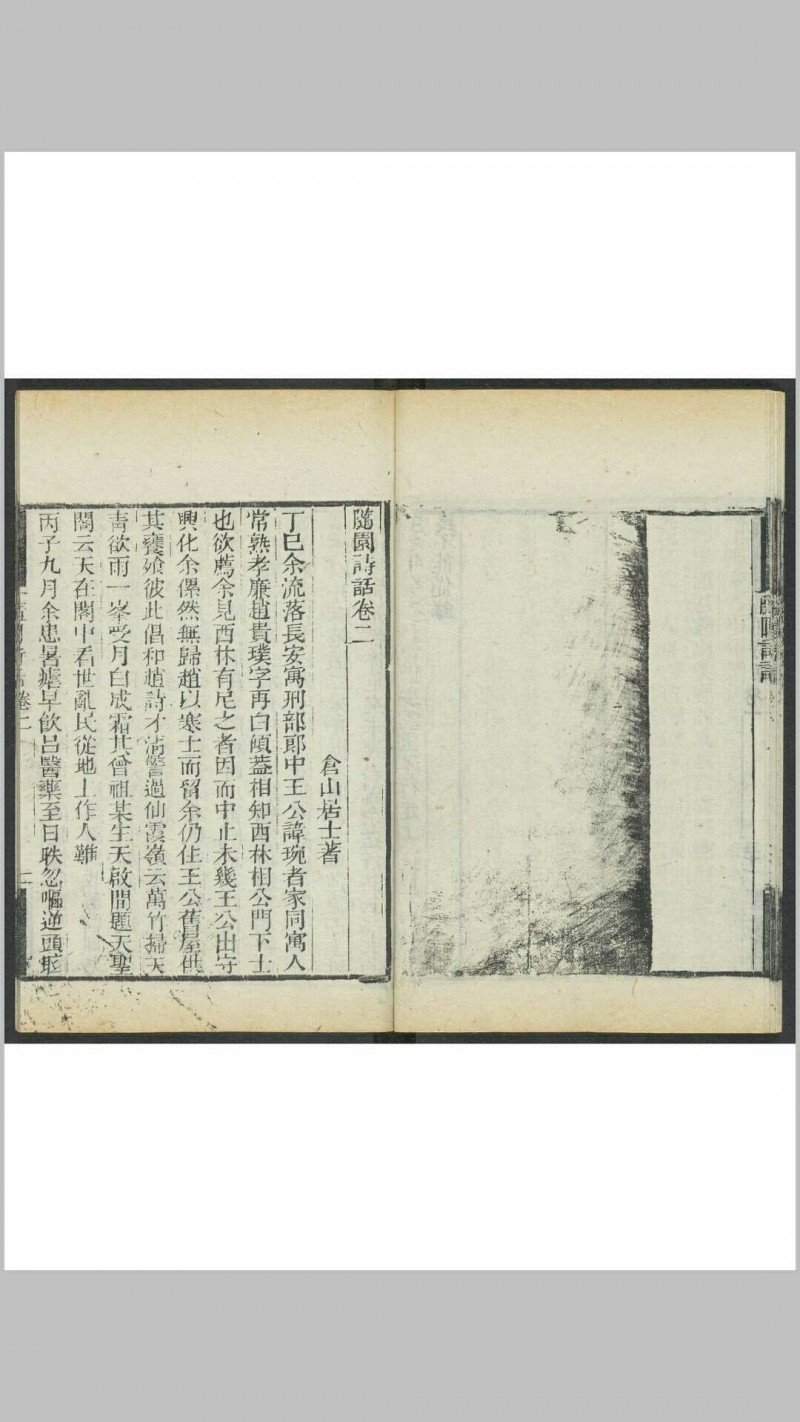 隨園詩話卷二
倉山居士著
丁巳余流落長安寓刑部郎中王公諱琬者家同寓人
常熟孝廉趙貴璞字再白傾蓋相知西林相公門下士
也欲薦余見西林有尼之者因而中止未幾王公出守
興化余傫然無歸趙以寒士而留余仍住王公舊屋供
其饔飧彼此倡和趙詩才清警過仙霞嶺云萬竹掃天
青欲雨一峯受月白成霜其曾祖某生天啟間題天聖
閣云天在閣中看世亂民從地上作人難
丙子九月余患暑瘧早飲呂醫藥至日昳忽嘔逆頭眩
卷二